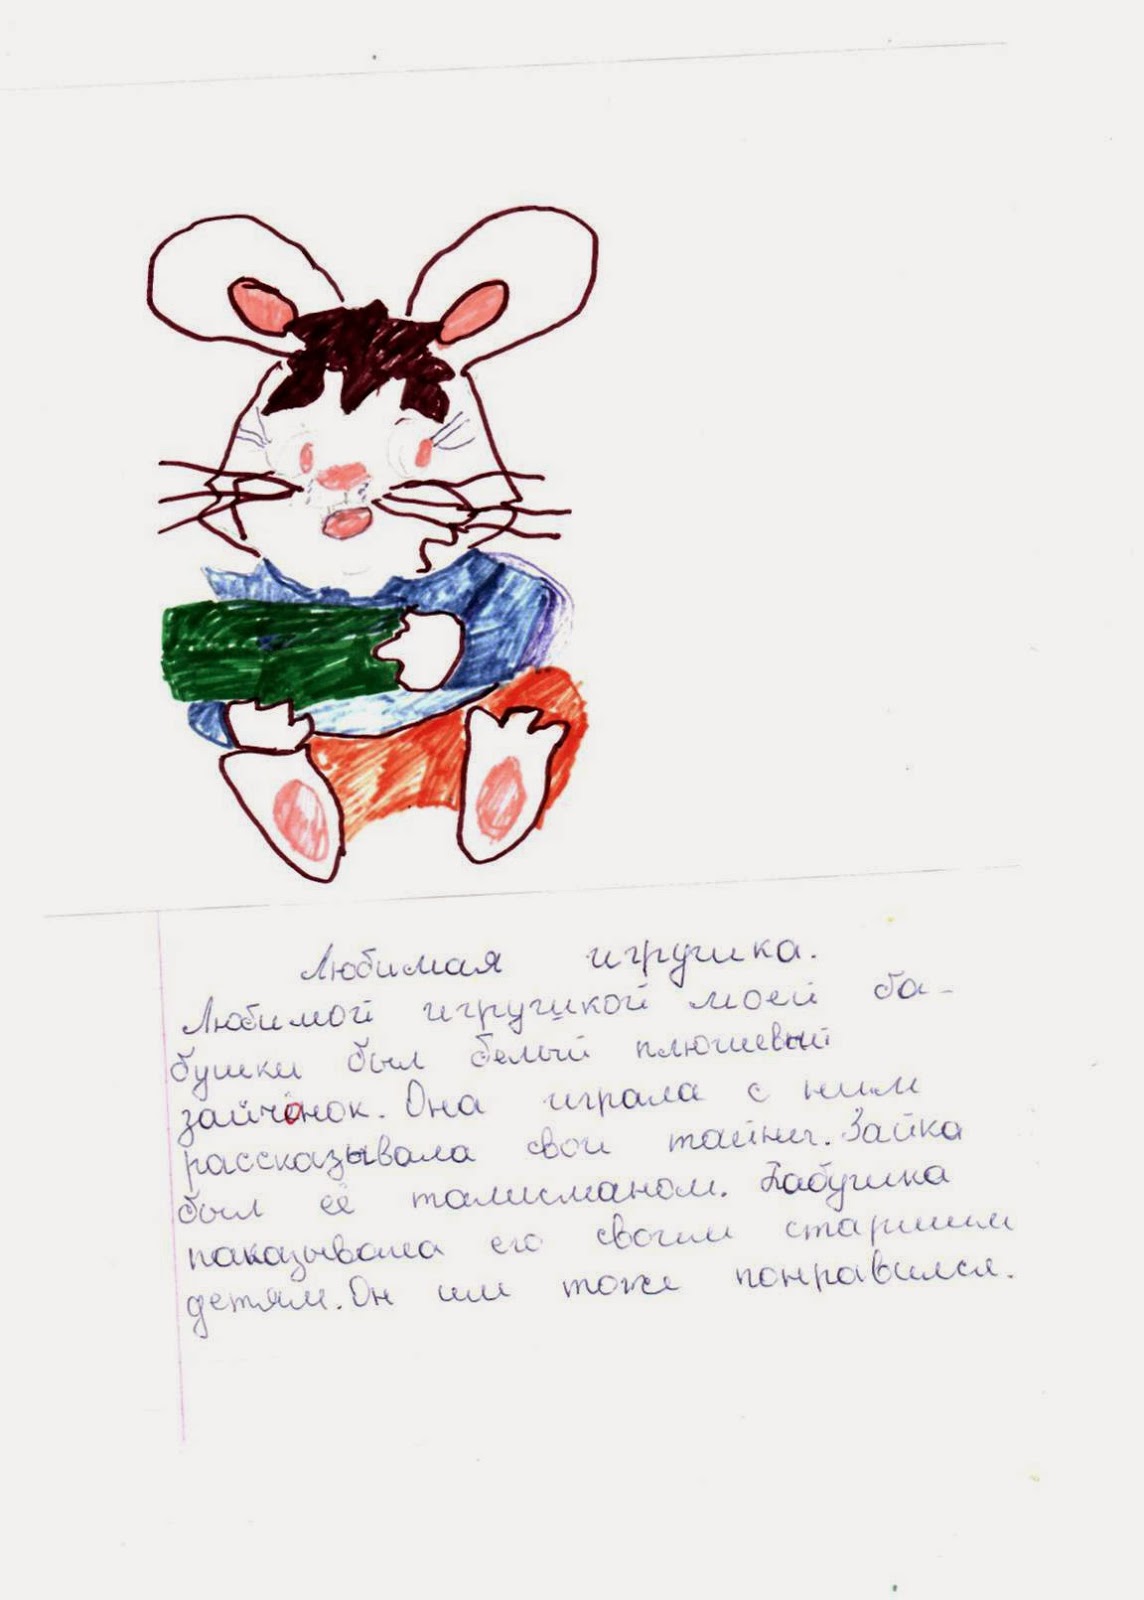 Любимая игрушка.
Любимой игрушкой моей ба-
бушки был белый плюшевый
зайчонок. Она играла с ним
рассказывала свои тайны. Зайка
был её талисманом. Бабушка
паказывала его своим старшим
детям. Он им тоже понравился.